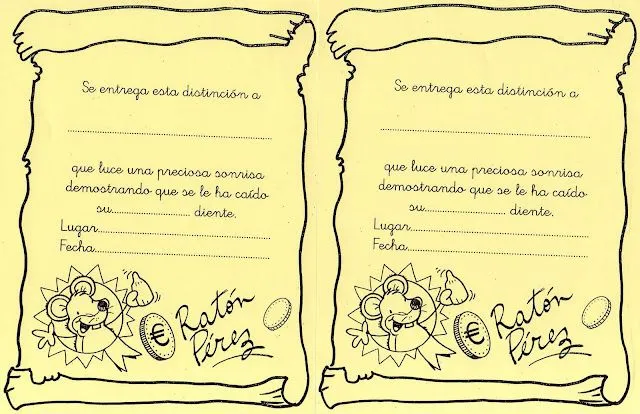 Se entrega esta distinción a
que luce una preciosa sonrisa
demostrando que se le ha caído
su........................ diente.
Lugar
Fecha
€
Ratón
Pérez
Se entrega esta distinción a
que luce una preciosa sonrisa
demostrando que se le ha caído
su........................ diente.
Lugar
Fecha
€
Ratón
Pérez